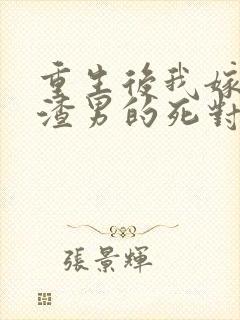 重生後我嫁
渣男的死對
張景輝